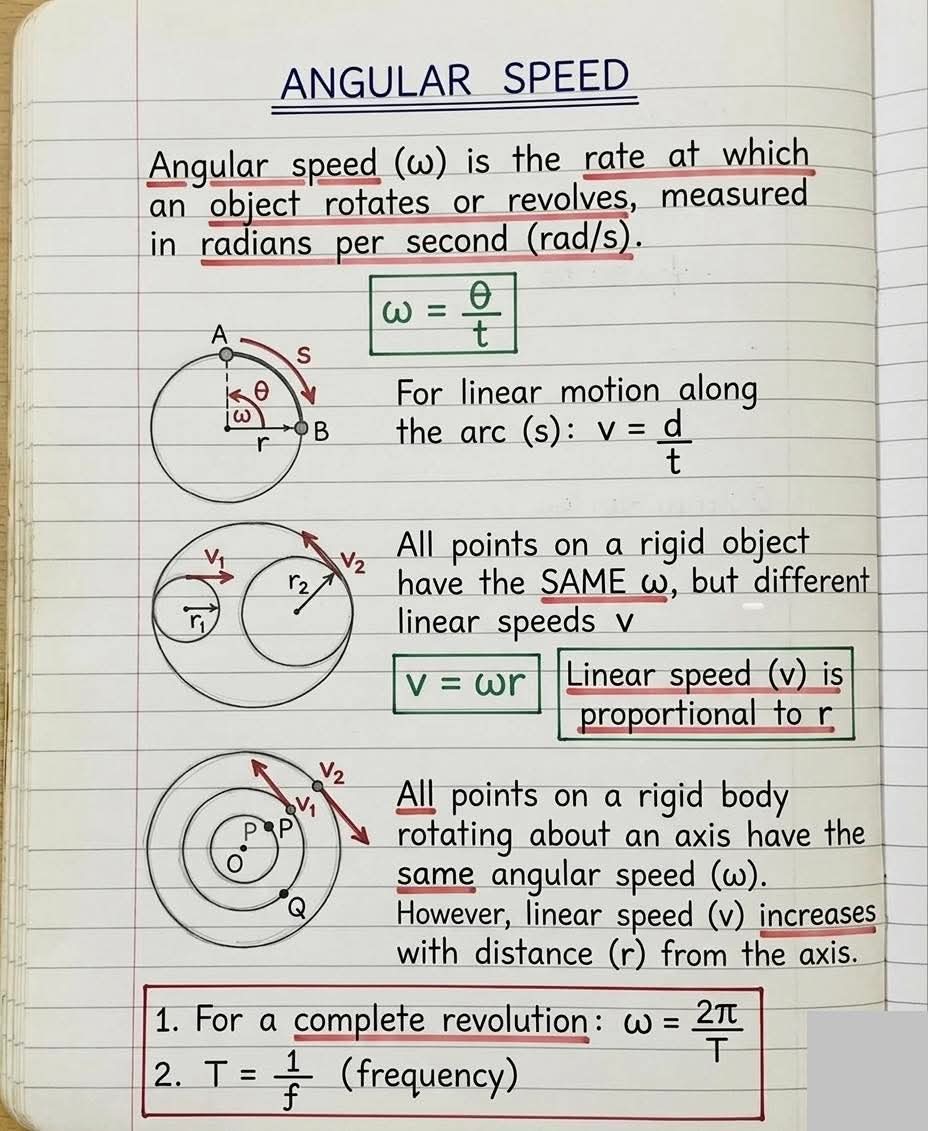 ANGULAR SPEED
Angular speed (ω) is the rate at which
an object rotates or revolves, measured
in radians per second (rad/s).
ω = θ/t
A
s
θ
ω
r
B
For linear motion along
the arc (s): v = d/t
v₁
v₂
r₁
r₂
All points on a rigid object
have the SAME ω, but different
linear speeds v
v = ωr
Linear speed (v) is
proportional to r
v₂
v₁
P P
O
Q
All points on a rigid body
rotating about an axis have the
same angular speed (ω).
However, linear speed (v) increases
with distance (r) from the axis.
1. For a complete revolution: ω = 2π/T
2. T = 1/f (frequency)